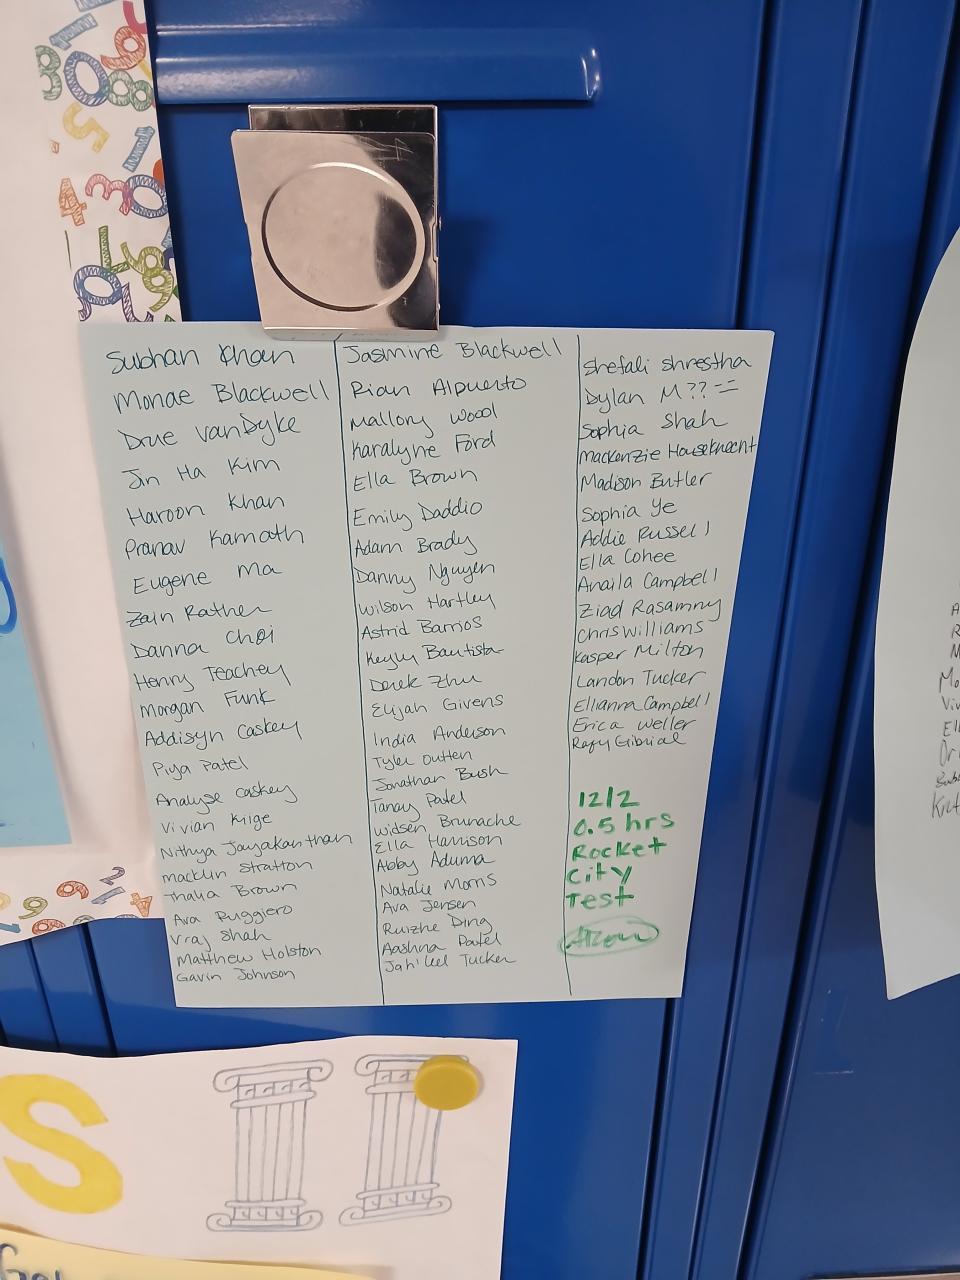 Subhan Khan
Monae Blackwell
Drue vanDyke
Jin Ha Kim
Haroon Khan
Pranav Kamath
Eugene Ma
Zain Rather
Danna Choi
Henry Teachey
Morgan Funk
Addisyn Caskey
Piya Patel
Analyse Caskey
Vivian Kige
Nithya Jayakanthan
Macklin Stratton
Thalia Brown
Ava Ruggiero
Vraj Shah
Matthew Holston
Gavin Johnson
Jasmine Blackwell
Rian Alpuerto
Mallory Wood
Karalyne Ford
Ella Brown
Emily Daddio
Adam Brady
Danny Nguyen
Wilson Hartley
Astrid Barrios
Keyly Bautista
Derek Zhu
Elijah Givens
India Anderson
Tyler Outten
Jonathan Bush
Tanay Patel
Widsen Brunache
Ella Harrison
Abby Aduma
Natalie Morris
Ava Jensen
Ruizhe Ding
Aashna Patel
Jah'keel Tucker
Shefali Shrestha
Dylan M??
Sophia Shah
Mackenzie Houseknecht
Madison Butler
Sophia Ye
Addie Russell
Ella Cohee
Anaila Campbell
Ziad Rasamny
Chris Williams
Kasper Milton
Landon Tucker
Ellianna Campbell
Erica Weller
Rafy Gibrial
12/2
0.5 hrs
Rocket
City
Test
S